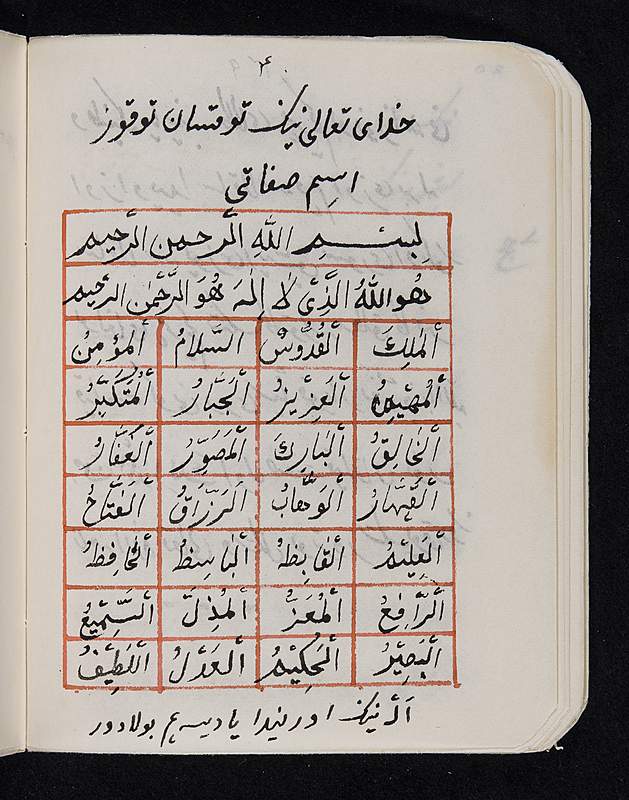 ۴
خدای تعالی نیک توقسان توقوز
اسم صفاتی
بِسْمِ اللّٰهِ الرَّحمن الرَّحیم
هُوَ اللّٰهُ الَّذِیْ لَا اِلٰهَ هُوَ الرَّحْمٰن الرَّحیم
اَلْمَلِكَ اَلْقُدُّوسُ السَّلَامُ اَلْمُؤمِنُ
اَلْمُهَیْمِنُ اَلْعَزِیْزُ اَلْجَبَّارُ اَلْمُتَكَبِّرُ
اَلْخَالِقُ اَلْبَارِكَ اَلْمُصَوِّرُ اَلْغَفَّارُ
اَلْقَهَّارُ اَلْوَهَّابُ اَلرَزَّاقُ اَلْفَتَّاحُ
اَلْعَلِیْمُ اَلْقَابِظُ اَلْبَاسِظُ اَلْخَافِظُ
اَلرَّافِعُ اَلْمُعِزُّ اَلْمُذِلَّ اَلسَّمِیْعُ
اَلْبَصِیْرُ اَلْحَكِیْمُ اَلْعَدْلُ اَللَّطِیْفُ
اَلْ نیک اورنیدا یا دیسه هم بولادور